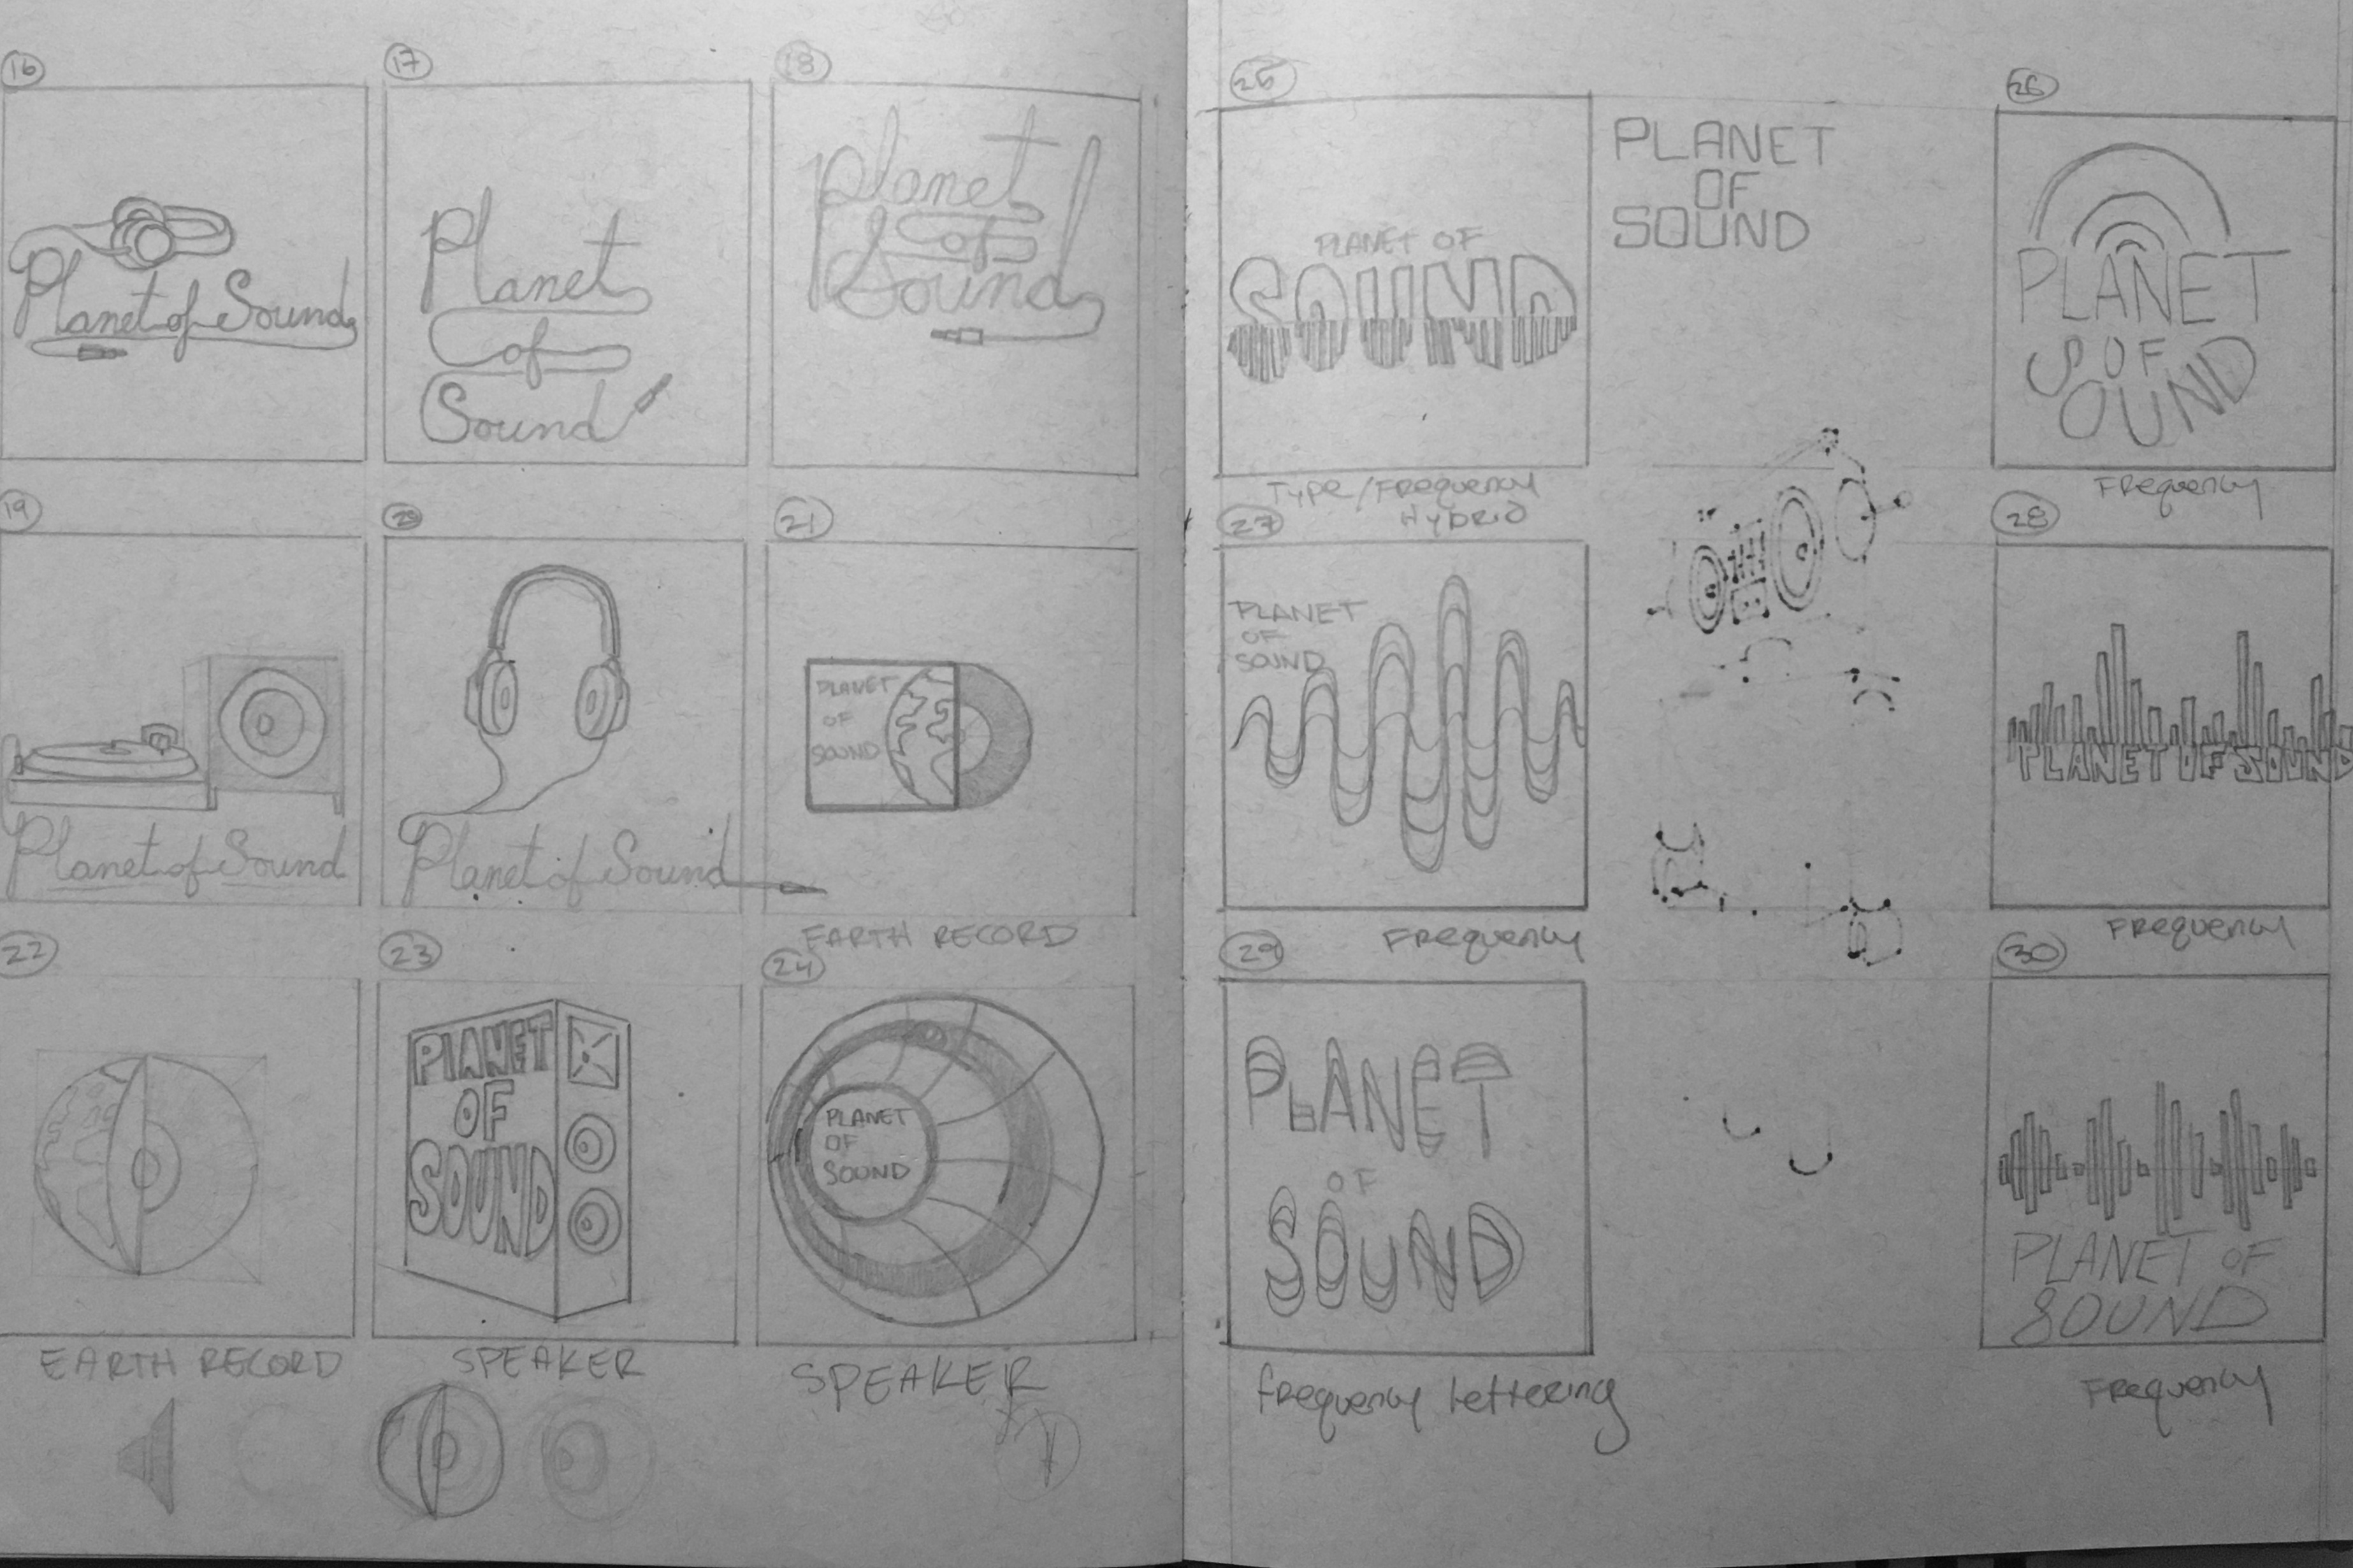 16
Planet of Sound
17
Planet
of
Sound
18
Planet
of
Sound
19
Planet of Sound
20
Planet of Sound
21
PLANET
OF
SOUND
EARTH RECORD
22
EARTH RECORD
23
PLANET
OF
SOUND
SPEAKER
24
PLANET
OF
SOUND
SPEAKER
25
PLANET OF
SOUND
TYPE/FREQUENCY
HYBRID
PLANET
OF
SOUND
26
PLANET
OF
SOUND
FREQUENCY
27
PLANET
OF
SOUND
FREQUENCY
28
PLANET OF SOUND
FREQUENCY
29
PLANET
OF
SOUND
frequency lettering
30
PLANET OF
SOUND
FREQUENCY